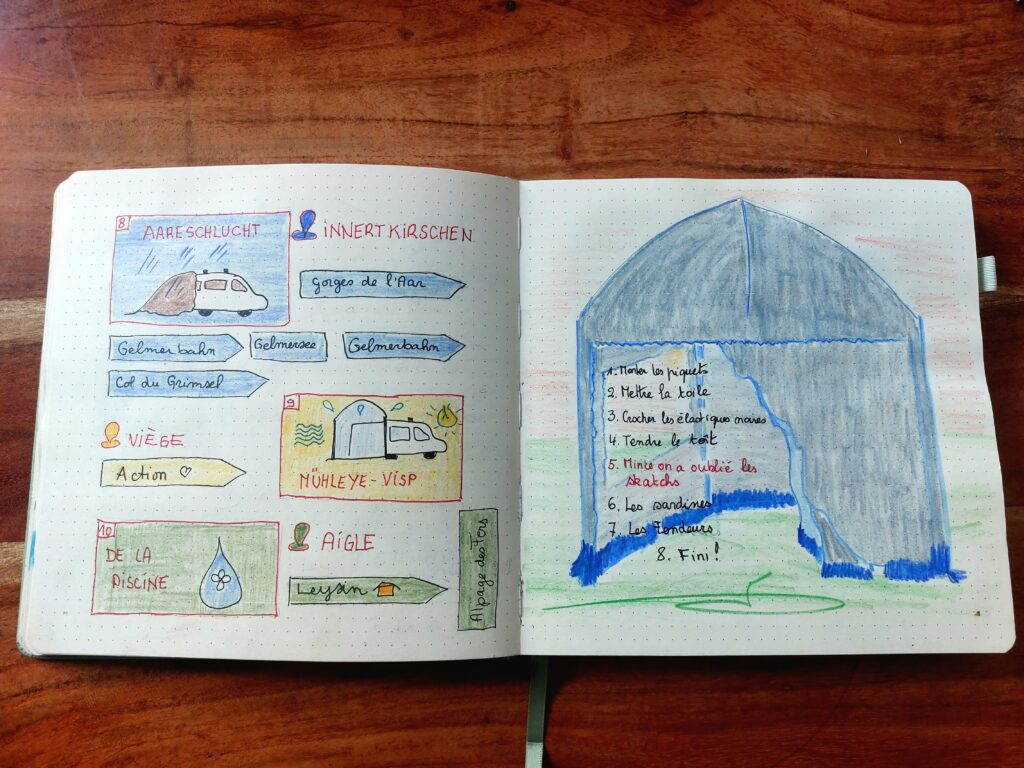 8
AARESCHLUCHT
INNERTKIRSCHEN
Gorges de l'Aar
Gelmerbahn
Gelmersee
Gelmerbahn
Col du Grimsel
9
MÜHLEYE-VISP
VIÈGE
Action ♡
10
DE LA
PISCINE
AIGLE
Leysin
Alpage des Fers
1. Monter les piquets
2. Mettre la toile
3. Crocher les élastiques noires
4. Tendre le toît
5. Mince on a oublié les
skatchs
6. Les sardines
7. Les Tendeurs
8. Fini !